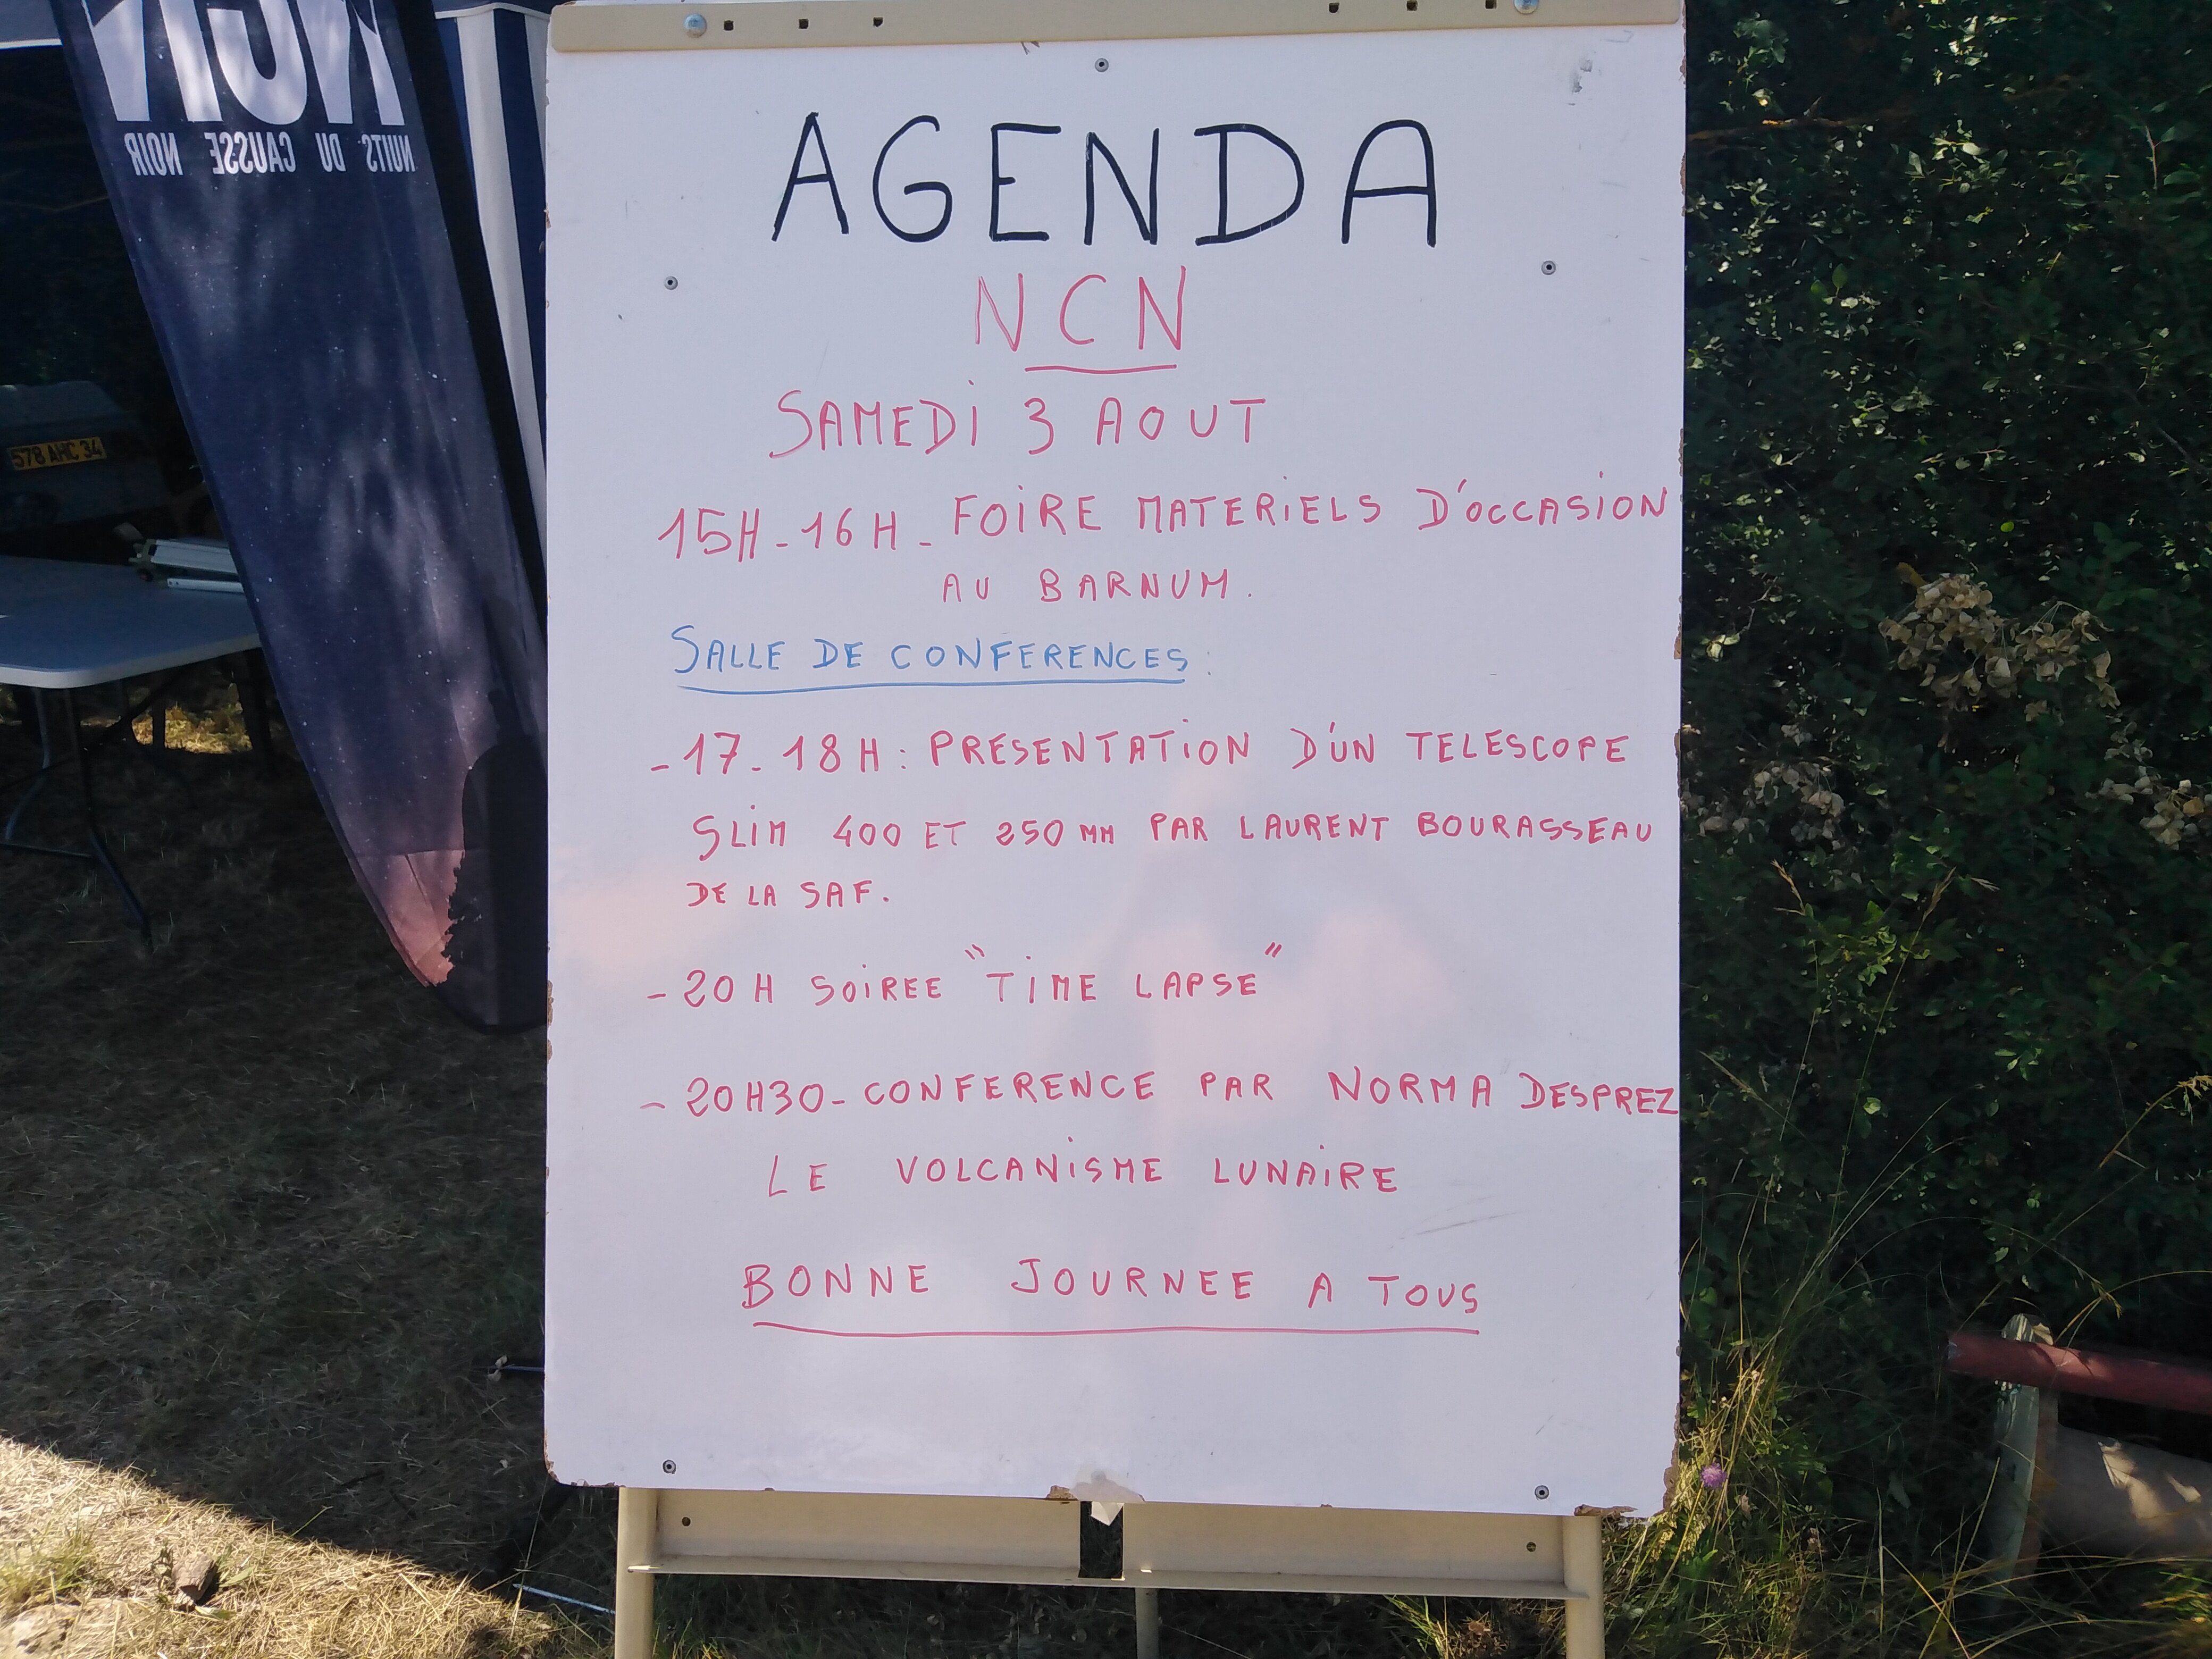 NCN
NUITS DU CAUSSE NOIR
578 AHC 34
AGENDA
NCN
SAMEDI 3 AOUT
15H-16H- FOIRE MATERIELS D'OCCASION
AU BARNUM.
SALLE DE CONFERENCES:
-17-18H: PRESENTATION D'UN TELESCOPE
SLIM 400 ET 250 mm PAR LAURENT BOURASSEAU
DE LA SAF.
-20H SOIREE "TIME LAPSE"
-20H30-CONFERENCE PAR NORMA DESPREZ
LE VOLCANISME LUNAIRE
BONNE JOURNEE A TOUS